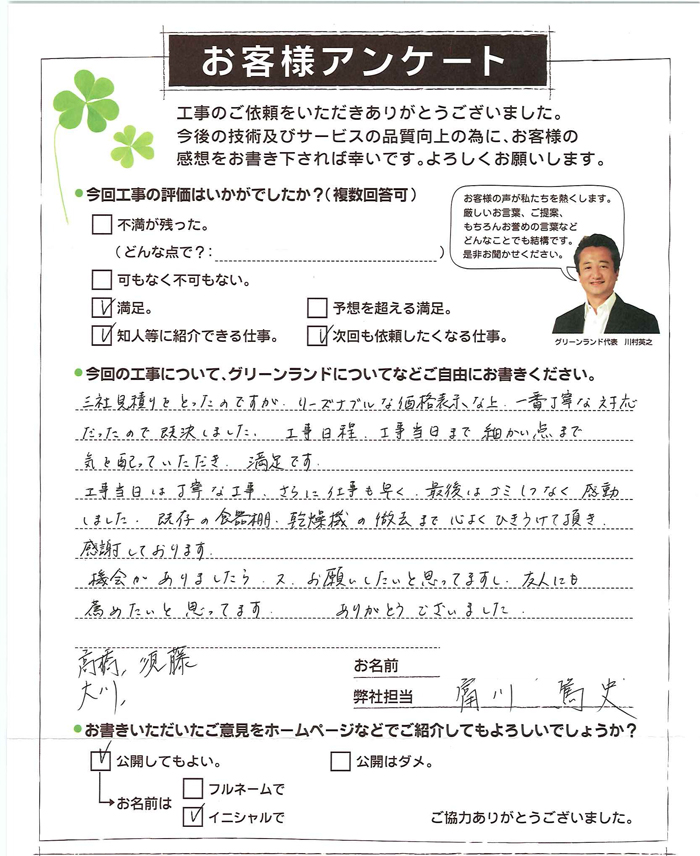 お客様アンケート
工事のご依頼をいただきありがとうございました。
今後の技術及びサービスの品質向上の為に、お客様の
感想をお書き下されば幸いです。よろしくお願いします。
今回工事の評価はいかがでしたか?(複数回答可)
不満が残った。
(どんな点で?: )
可もなく不可もない。
満足。 予想を超える満足。
知人等に紹介できる仕事。 次回も依頼したくなる仕事。
お客様の声が私たちを熱くします。
厳しいお言葉、ご提案、
もちろんお誉めの言葉など
どんなことでも結構です。
是非お聞かせください。
グリーンランド代表 川村英之
今回の工事について、グリーンランドについてなどご自由にお書きください。
三社見積りをとったのですが、リーズナブルな価格表示な上、一番丁寧な対応
だったので即決しました。 工事日程、工事当日まで細かい点まで
気を配っていただき、満足です。
工事当日は丁寧な工事、さらに仕事も早く、最後はゴミ1つなく感動
しました。既存の食器棚、乾燥機の撤去まで心よくひきうけて頂き、
感謝しております。
機会がありましたら、又、お願いしたいと思ってますし、友人にも
薦めたいと思ってます。 ありがとうございました。
高橋、須藤
大川、
お名前
弊社担当 川 篤史
お書きいただいたご意見をホームページなどでご紹介してもよろしいでしょうか?
公開してもよい。 公開はダメ。
お名前は フルネームで
イニシャルで
ご協力ありがとうございました。